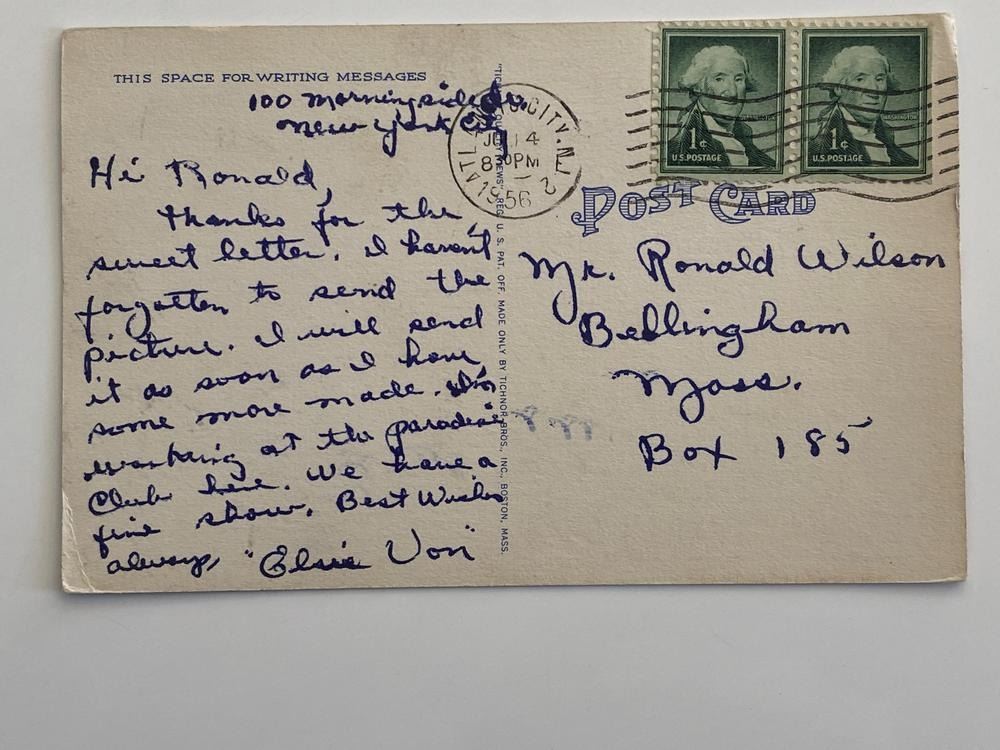 THIS SPACE FOR WRITING MESSAGES
100 Morningside dr.
New York City
Hi Ronald,
thanks for the
sweet letter. I haven't
forgotten to send the
picture. I will send
it as soon as I have
some more made. I'm
working at the paradise
Club here. We have a
fine show. Best Wishes
always, "Elsie Von"
"TICHNOR QUALITY VIEWS" REG. U. S. PAT. OFF. MADE ONLY BY TICHNOR BROS., INC., BOSTON, MASS.
ATLANTIC CITY, N.J. 2
14
8 30 PM
1956
1¢
U.S. POSTAGE
WASHINGTON
1¢
U.S. POSTAGE
WASHINGTON
POST CARD
Mr. Ronald Wilson
Bellingham
Mass.
Box 185